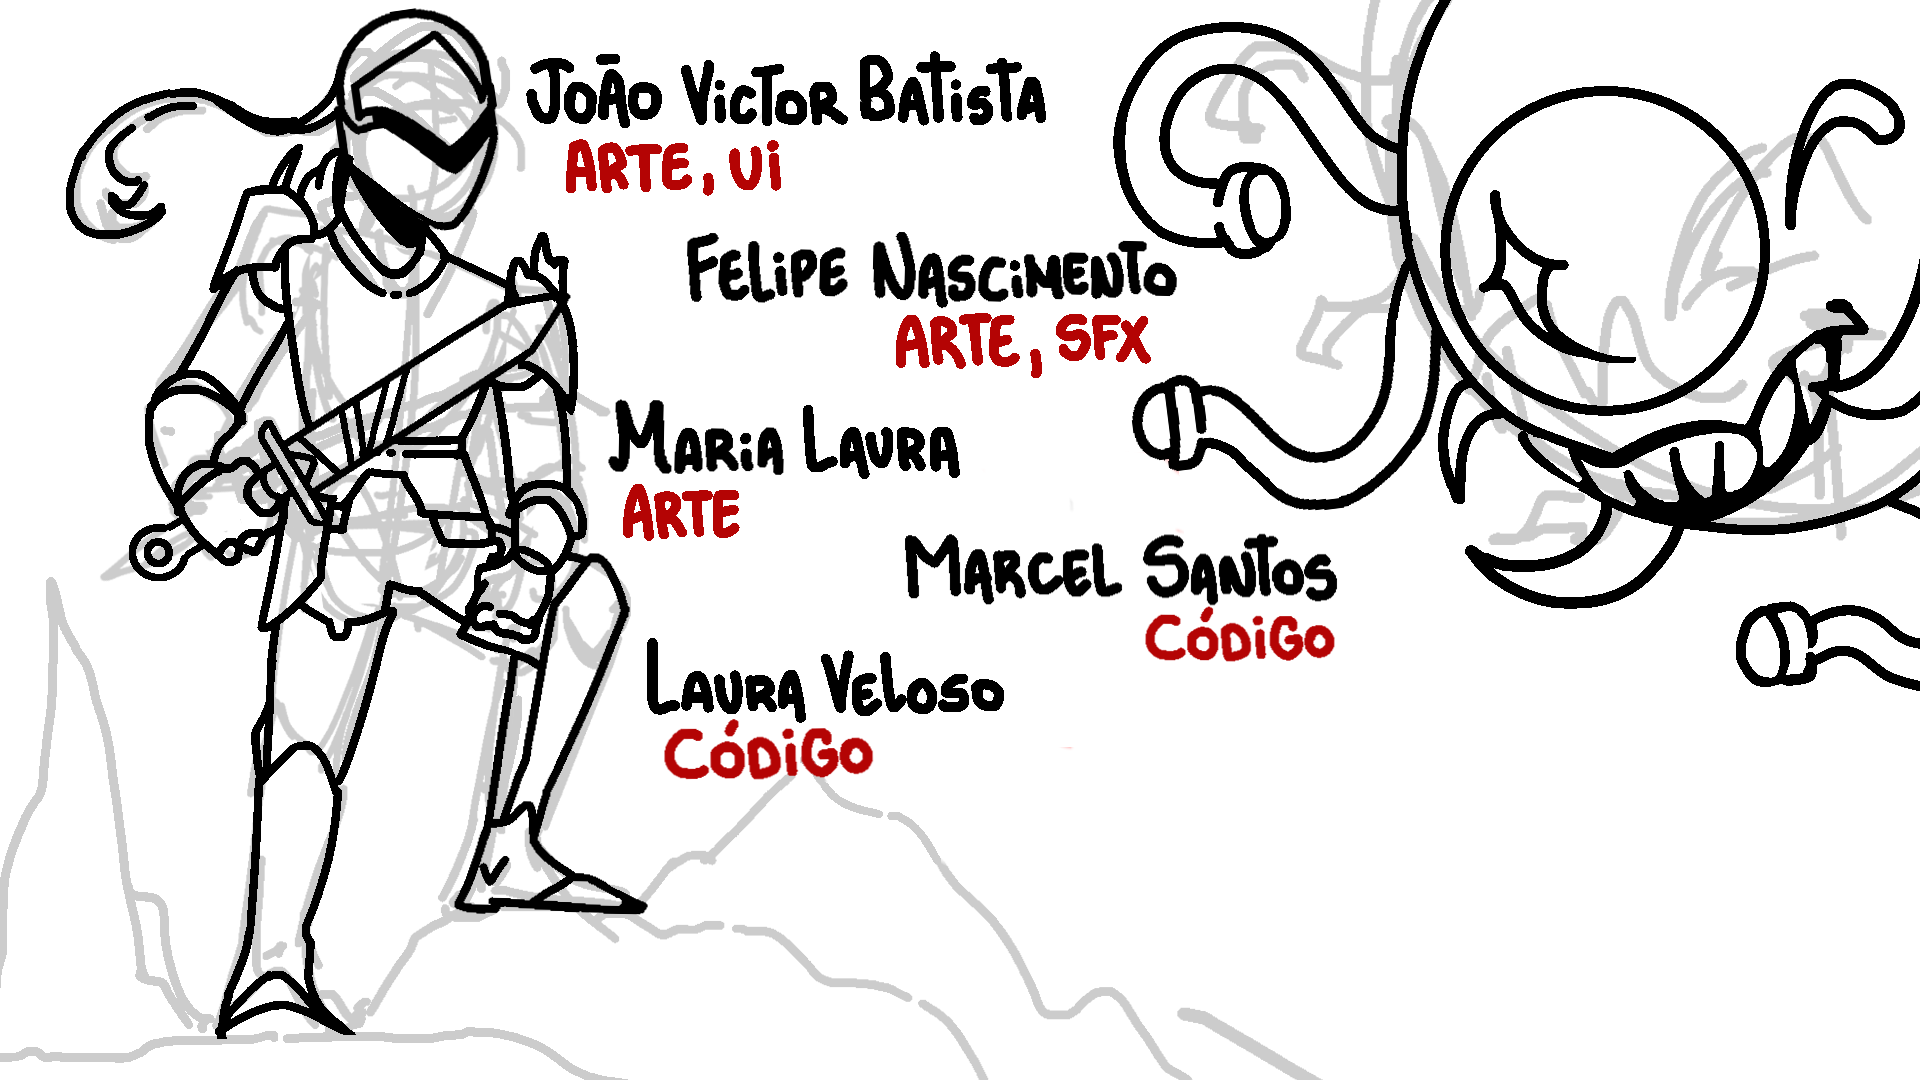 João Victor Batista
Arte, Ui
Felipe Nascimento
Arte, SFX
Maria Laura
Arte
Marcel Santos
Código
Laura Veloso
Código